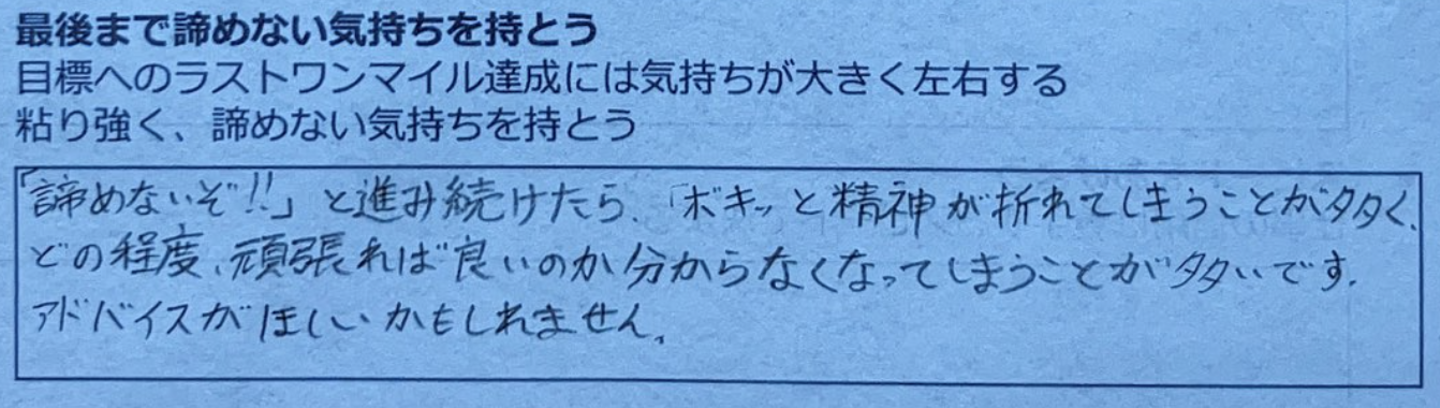 最後まで諦めない気持ちを持とう
目標へのラストワンマイル達成には気持ちが大きく左右する
粘り強く、諦めない気持ちを持とう
「諦めないぞ!!」と進み続けたら、「ボキッと精神が折れてしまうことが多く、
どの程度、頑張れば良いのか分からなくなってしまうことが多いです。
アドバイスがほしいかもしれません。